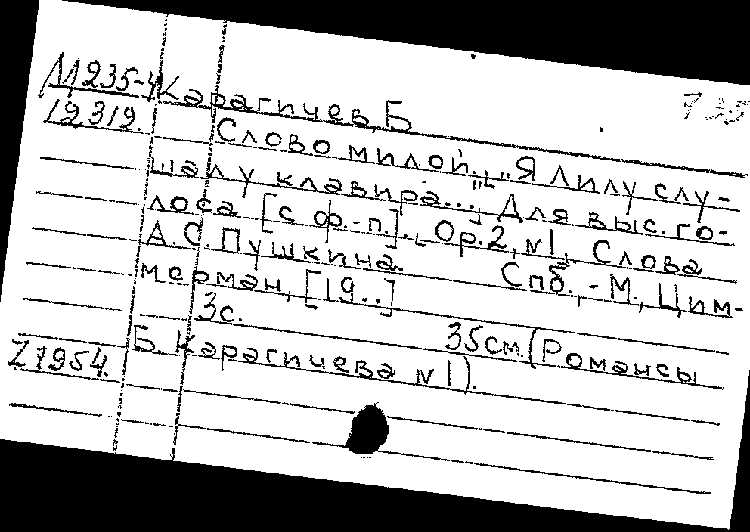 М235-4 Карагичев, Б 735
12319.
Слово милой. „Я Лилу слу-
шал у клавира..." Для выс. го-
лоса [с ф.-п.]. Op. 2, N1. Слова
А. С. Пушкина. Спб., - М., Цим-
мерман, [19..]
3с. 35см. (Романсы
Б. Карагичева N1).
Z7954.